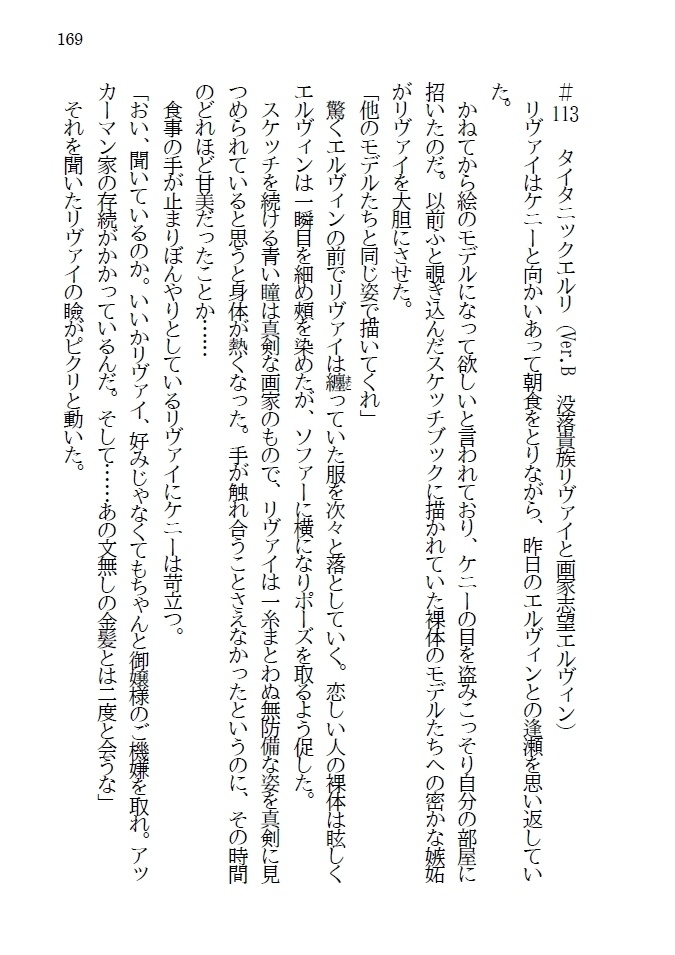 169
#113　タイタニックエルリ（Ver.B　没落貴族リヴァイと画家志望エルヴィン）
　リヴァイはケニーと向かいあって朝食をとりながら、昨日のエルヴィンとの逢瀬を思い返してい
た。
　かねてから絵のモデルになって欲しいと言われており、ケニーの目を盗みこっそり自分の部屋に
招いたのだ。以前ふと覗き込んだスケッチブックに描かれていた裸体のモデルたちへの密かな嫉妬
がリヴァイを大胆にさせた。
「他のモデルたちと同じ姿で描いてくれ」
　驚くエルヴィンの前でリヴァイは纏っていた服を次々と落としていく。恋しい人の裸体は眩しく
エルヴィンは一瞬目を細め頬を染めたが、ソファーに横になりポーズを取るよう促した。
　スケッチを続ける青い瞳は真剣な画家のもので、リヴァイは一糸まとわぬ無防備な姿を真剣に見
つめられていると思うと身体が熱くなった。手が触れ合うことさえなかったというのに、その時間
のどれほど甘美だったことか……
　食事の手が止まりぼんやりとしているリヴァイにケニーは苛立つ。
「おい、聞いているのか。いいかリヴァイ、好みじゃなくてもちゃんと御嬢様のご機嫌を取れ。アッ
カーマン家の存続がかかっているんだ。そして……あの文無しの金髪とは二度と会うな」
　それを聞いたリヴァイの瞼がピクリと動いた。